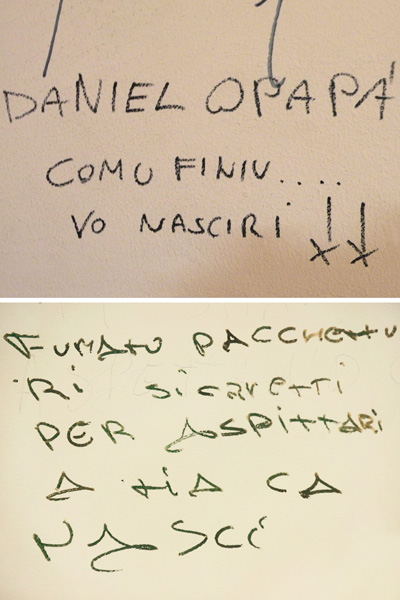 DANIEL OPAPÁ
COMU FINIU....
VO NASCIRI
FUMATO PACCHETTU
RI SICARETTI
PER ASPITTARI
A TIA CA
NASCI